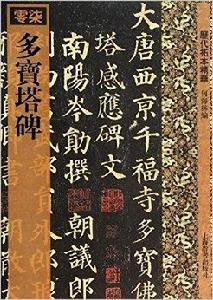 零柒
多寶塔碑
大唐西京千福寺多寶佛
塔感應碑文
南陽岑勛撰
朝議郎
歷代拓本精華
上海辭書出版社